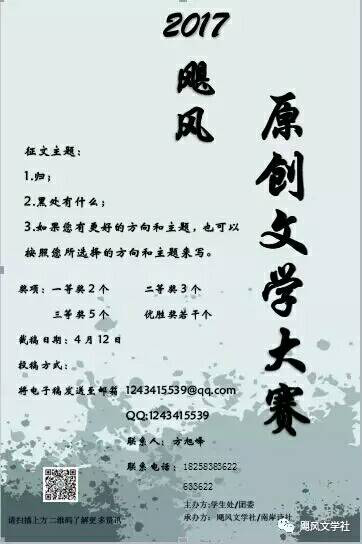 2017
飓风
原创文学大赛
征文主题：
1.归；
2.黑处有什么；
3.如果您有更好的方向和主题，也可以
按照您所选择的方向和主题来写。
奖项：一等奖2个 二等奖3个
三等奖5个 优胜奖若干个
截稿日期：4月12日
投稿方式：
将电子稿发送至邮箱 1243415539@qq.com
QQ:1243415539
联系人：方旭峰
联系电话：18258383622
633622
主办方:学生处/团委
请扫描上方二维码了解更多资讯
承办方：飓风文学社/南岸诗社
飓风文学社